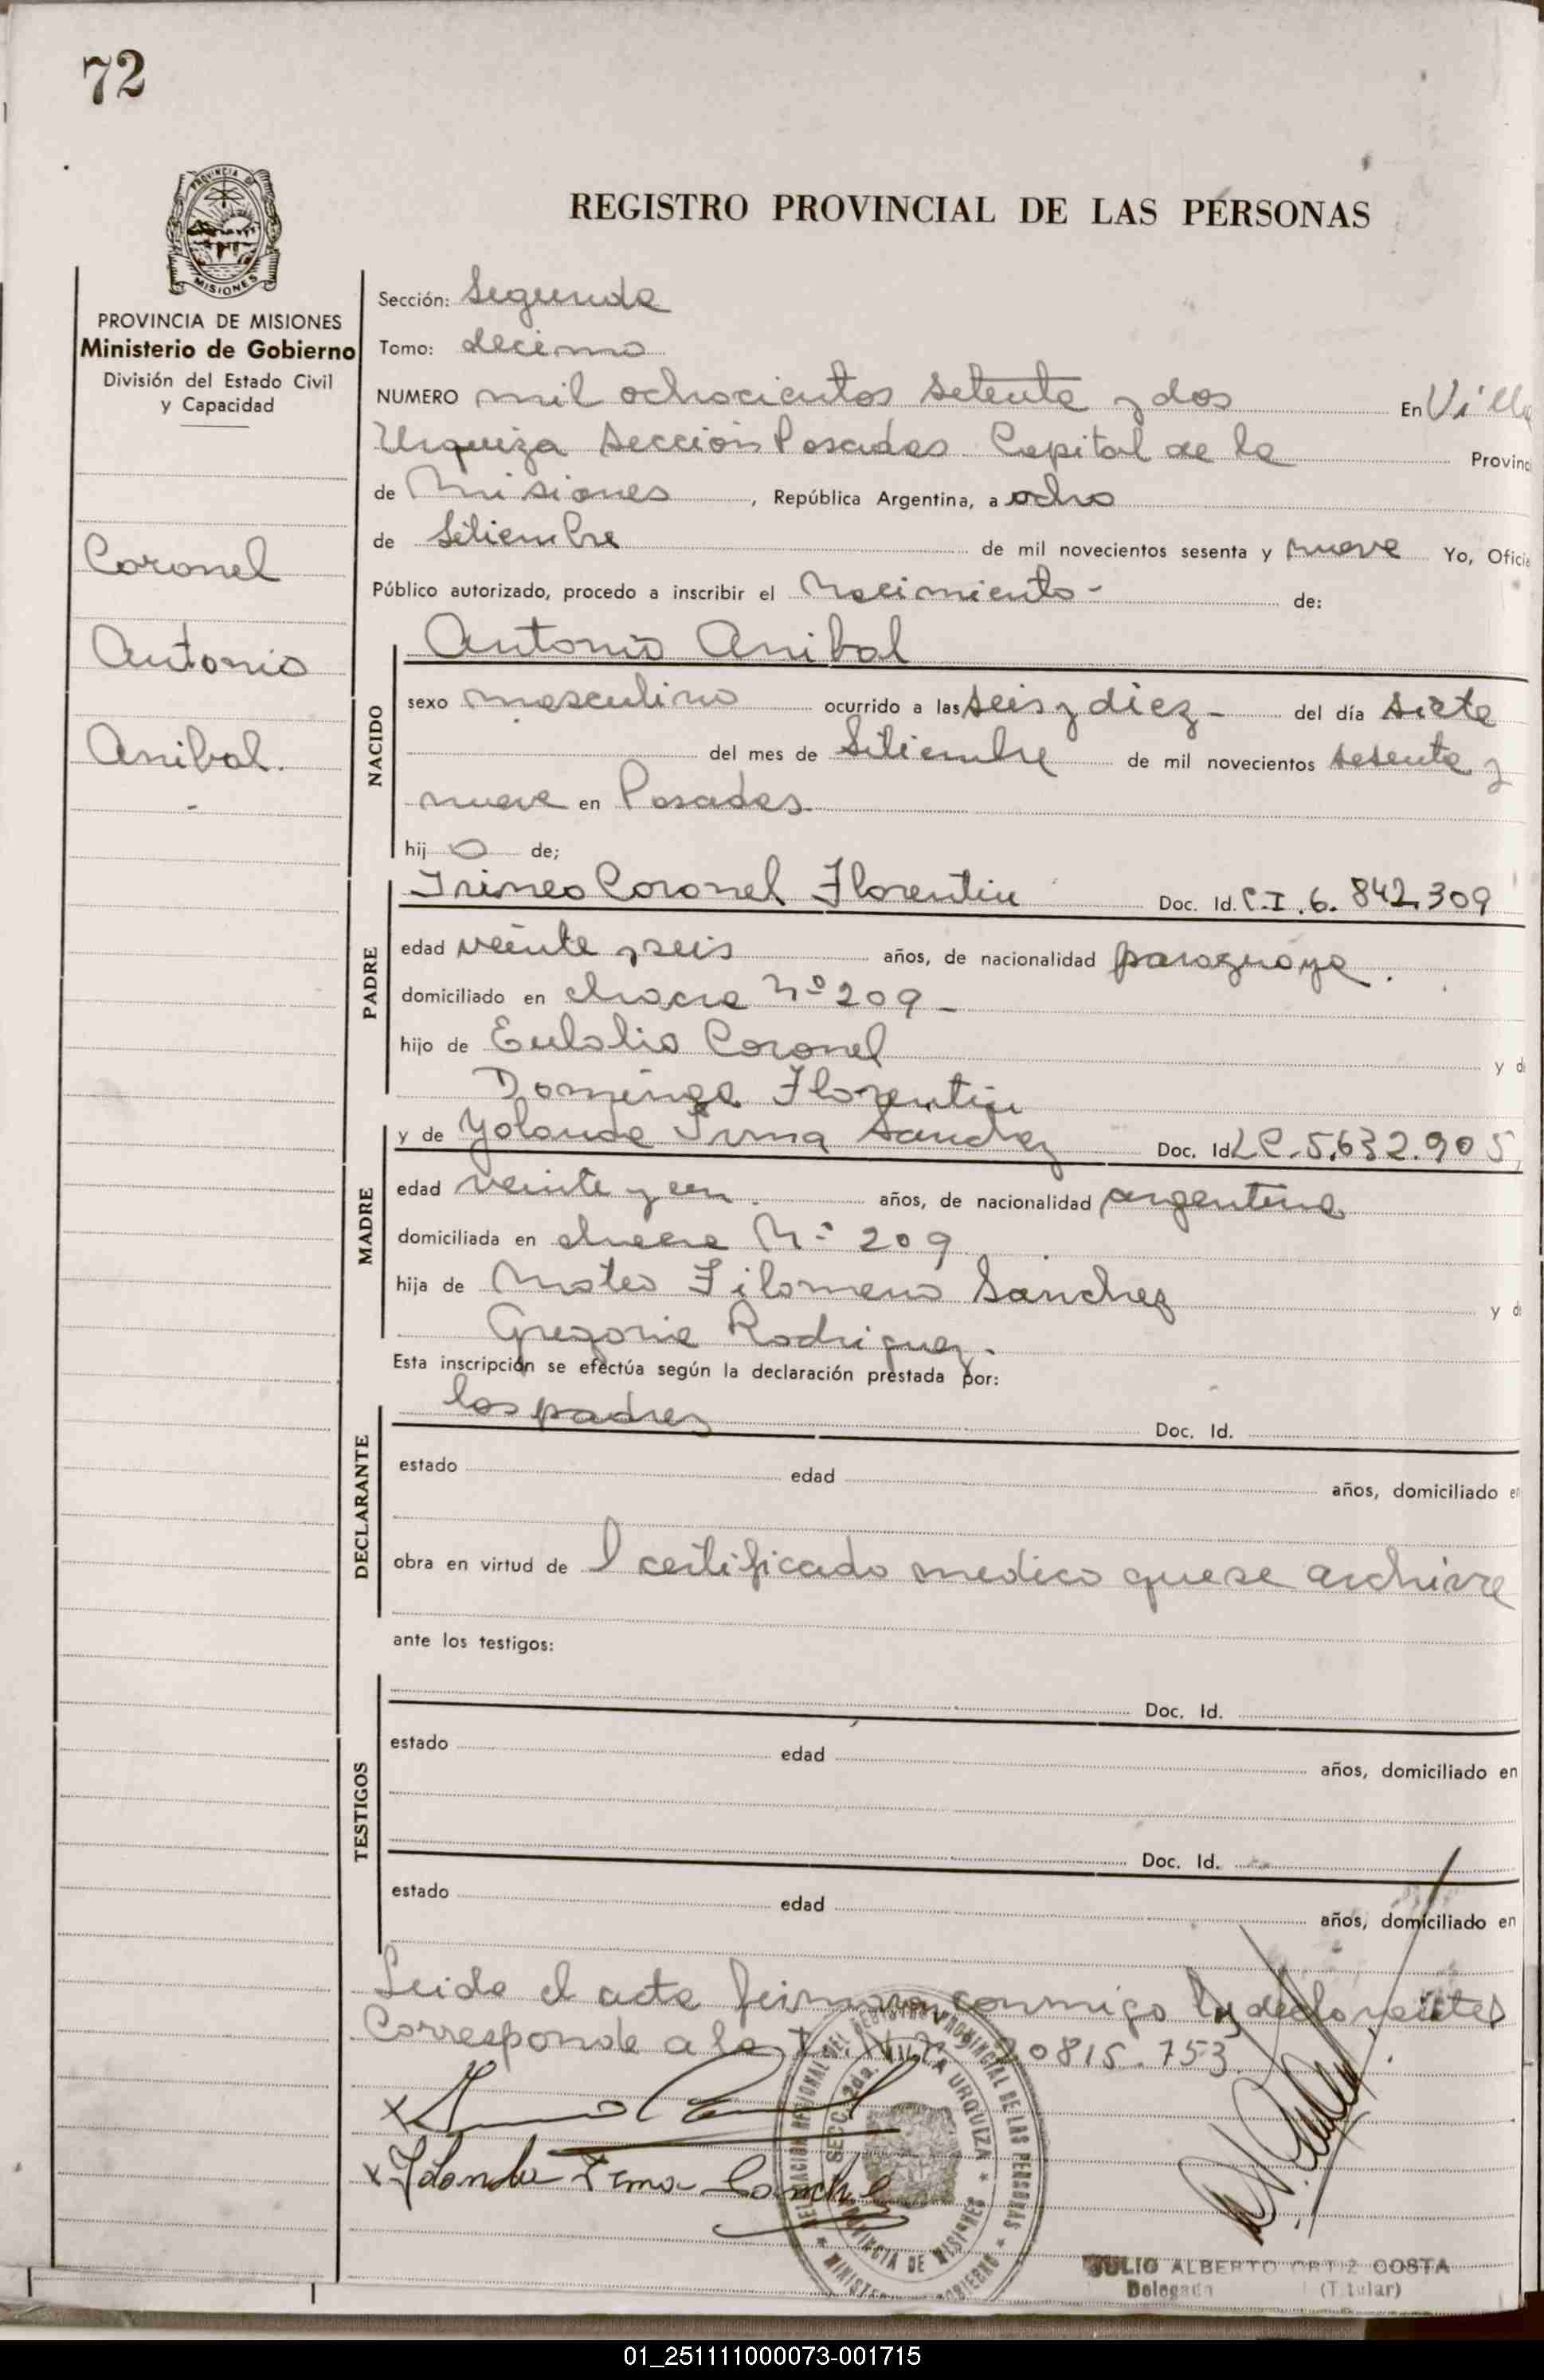 72
PROVINCIA DE
MISIONES
PROVINCIA DE MISIONES
Ministerio de Gobierno
División del Estado Civil
y Capacidad
Coronel
Antonio
Anibal.
REGISTRO PROVINCIAL DE LAS PERSONAS
Sección: Segunda
Tomo: decimo
NUMERO mil ochocientos setenta y dos En Villa
Urquiza Sección Posadas Capital de la Provinc
de Misiones, República Argentina, a ocho
de Setiembre de mil novecientos sesenta y nueve Yo, Oficia
Público autorizado, procedo a inscribir el Nacimiento - de:
NACIDO
Antonio Anibal
sexo masculino ocurrido a las seis y diez - del día siete
del mes de Setiembre de mil novecientos sesenta y
nueve en Posadas
hij o de;
PADRE
Irineo Coronel Florentin Doc. Id. C.I. 6.842.309
edad veinte y seis años, de nacionalidad paraguaya.
domiciliado en chacra Nº 209 -
hijo de Eulalio Coronel y d
Dominga Florentin
MADRE
y de Yolanda Irma Sanchez Doc. Id LC. 5.632.905
edad veinte y un años, de nacionalidad argentina
domiciliada en chacra Nº 209
hija de Mateo Filomeno Sanchez y d
Gregoria Rodriguez.
Esta inscripción se efectúa según la declaración prestada por:
DECLARANTE
los padres Doc. Id.
estado edad años, domiciliado en
obra en virtud de l certificado medico que se archiva
ante los testigos:
TESTIGOS
Doc. Id.
estado edad años, domiciliado en
Doc. Id.
estado edad años, domiciliado en
Leida el acta firmaron conmigo los declarantes
Corresponde a la 20815.753.
x
x Yolanda Irma Sanchez
DELEGACION REGIONAL DEL REGISTRO PROVINCIAL DE LAS PERSONAS
SECC. 2da. VILLA URQUIZA
PROVINCIA DE MISIONES
JULIO ALBERTO ORTIZ COSTA
Delegado (Titular)
01_251111000073-001715